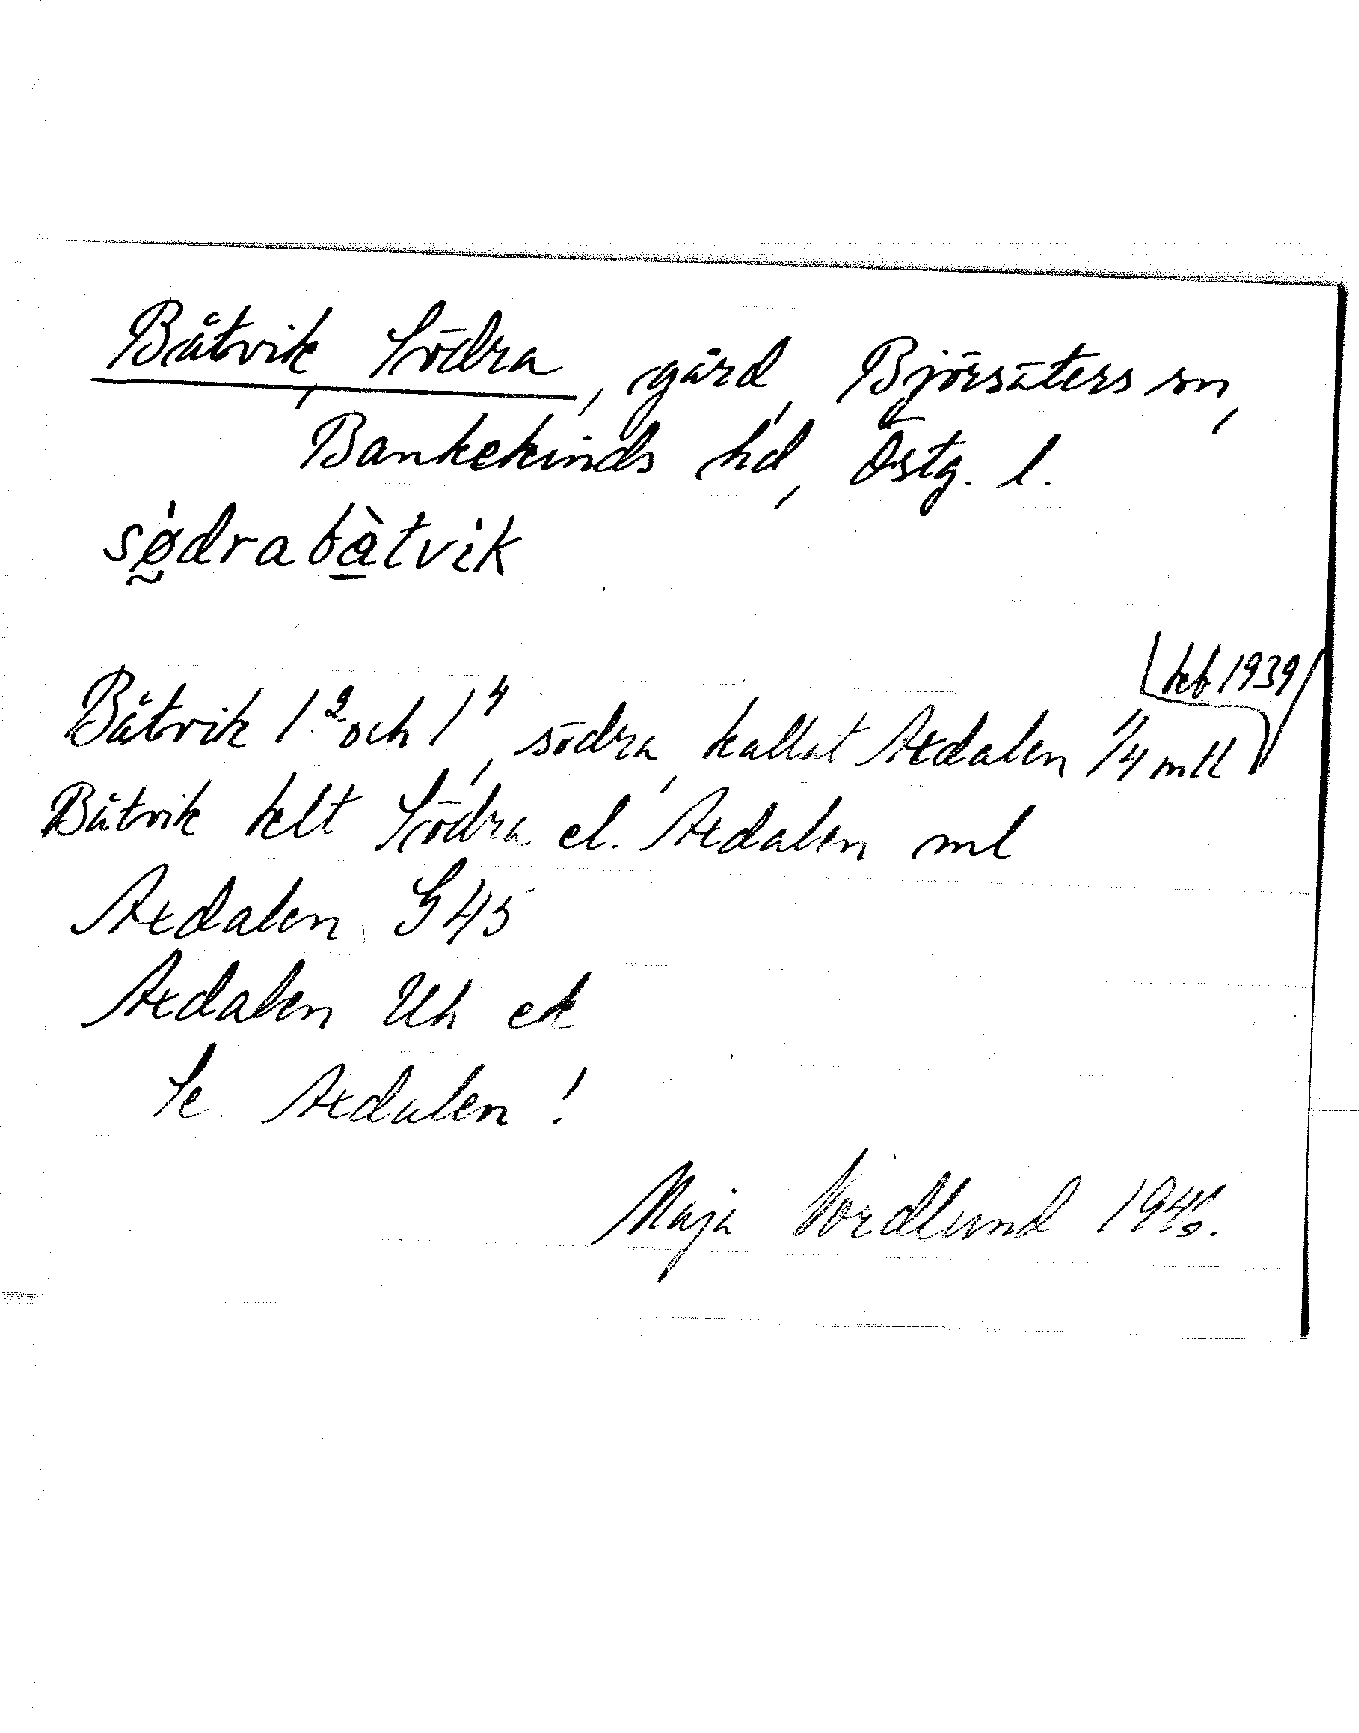 Båtvik, Södra, gård, Björsäters sn,
Bankekinds hd, Östg. l.
sødrabåtvik
keb 1939
Båtvik 1² och 1⁴, södra, kallat Axdalen 1/4 mtl
Båtvik helt Södra el. Axdalen ml
Axdalen G 45
Axdalen Uh ek
Se Axdalen!
Maja Nordlund